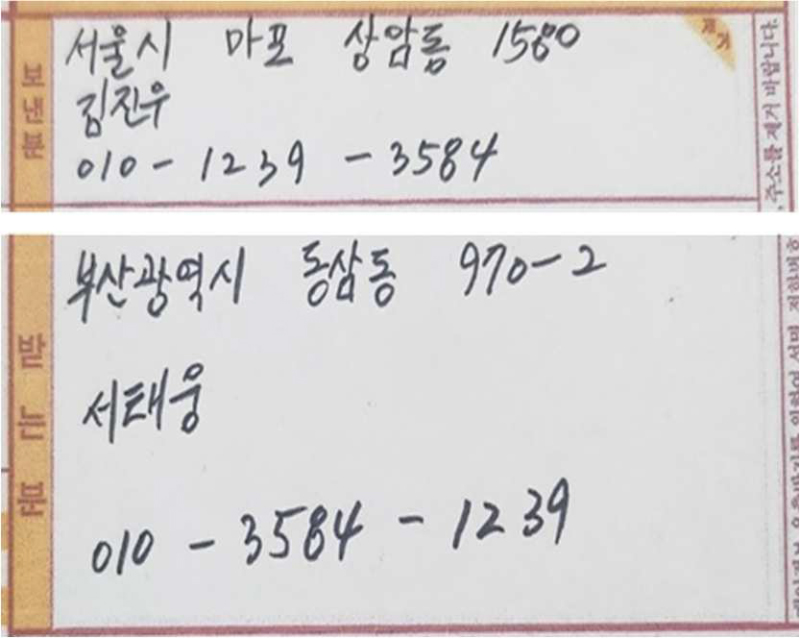 보낸분
서울시 마포 상암동 1580
김진우
010-1239-3584
제거
주소를 제거 바랍니다.
받는분
부산광역시 동삼동 970-2
서태웅
010-3584-1239